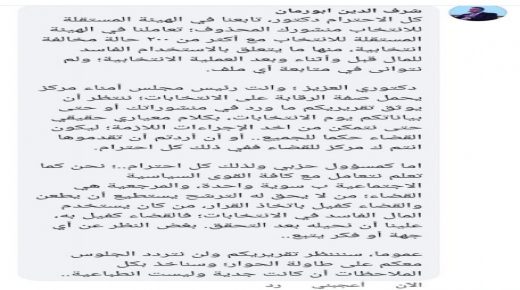 شرف الدين ابورمان
كل الاحترام دكتور، تابعنا في الهيئة المستقلة
للانتخاب منشورك المحذوف؛ تعاملنا في الهيئة
المستقلة للانتخاب مع أكثر من ٢٠٠ حالة مخالفة
انتخابية، منها ما يتعلق بالاستخدام الفاسد
للمال قبل وأثناء وبعد العملية الانتخابية؛ ولم
نتوانى في متابعة أي ملف.
دكتوري العزيز ؛ وانت رئيس مجلس أمناء مركز
يحمل صفة الرقابة على الانتخابات؛ ننتظر أن
يوثق تقريركم ما ورد في منشوراتك أو حتى
بياناتكم يوم الانتخابات، بكلام معياري حقيقي
حتى نتمكن من اخذ الإجراءات اللازمة؛ ليكون
القضاء حكما للجميع.. أو أن أردتم أن تقدموها
انتم ك مركز للقضاء ففي ذلك كل احترام.
اما كمسؤول حزبي ولذلك كل احترام..؛ نحن كما
تعلم نتعامل مع كافة القوى السياسية
الاجتماعية ب سوية واحدة، والمرجعية هي
القضاء؛ من لا يحق له الترشح يستطيع أن يطعن
والقضاء كفيل باتخاذ القرار، من كان يستخدم
المال الفاسد في الانتخابات؛ فالقضاء كفيل به،
علينا أن نحيله بعد التحقق، بغض النظر عن أي
جهة أو فكر يتبع..
عموما، سننتظر تقريركم ولن نتردد الجلوس
معكم على طاولة الحوار؛ وسناخذ بكل
الملاحظات أن كانت جدية وليست انطباعية..
الآن أعجبني رد